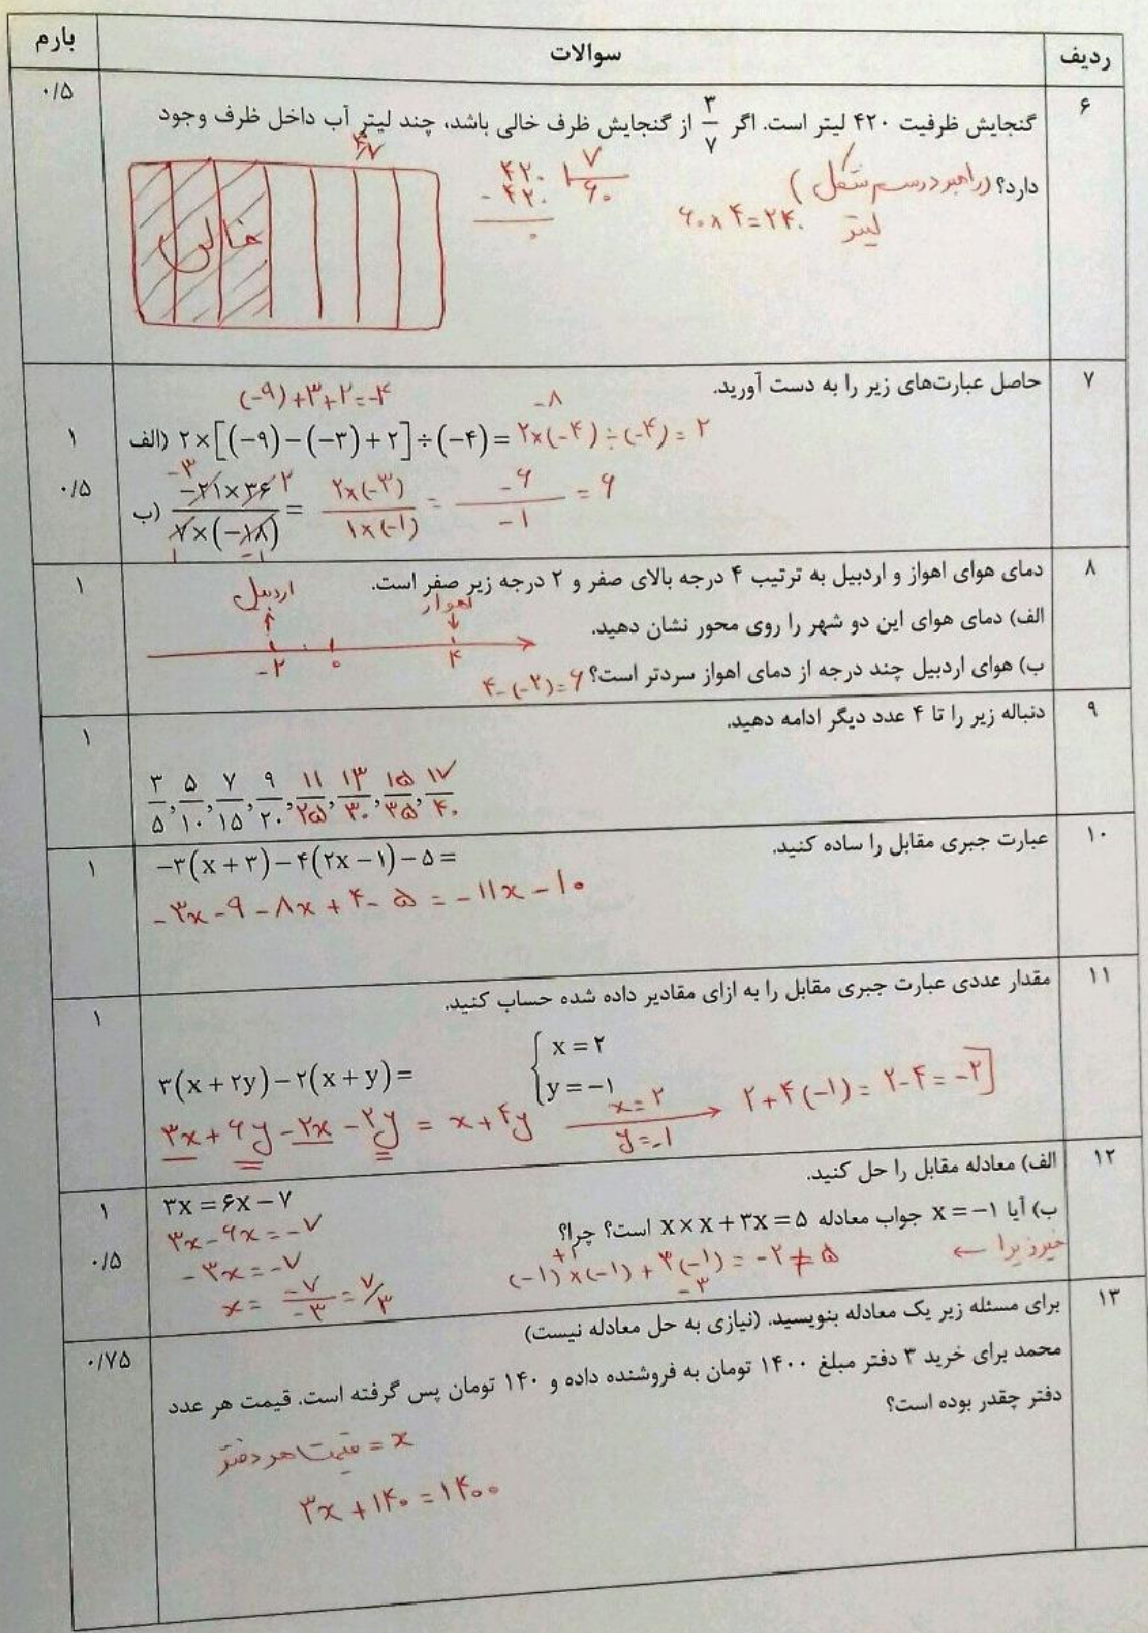 ردیف سوالات بارم
۶ ۰/۵
گنجایش ظرفیت ۴۲۰ لیتر است. اگر ۳/۷ از گنجایش ظرف خالی باشد، چند لیتر آب داخل ظرف وجود
دارد؟ (راهبرد رسم شکل)
۴/۷
۴۲۰ | ۷
- ۴۲۰ ۶۰
۰
۶۰×۴=۲۴۰ لیتر
خالی
۷ حاصل عبارت‌های زیر را به دست آورید.
(-۹)+۳+۲=-۴
-۸
۱ الف) ۲×[(-۹)-(-۳)+۲]÷(-۴)= ۲×(-۴)÷(-۴)=۲
-۳ ۲
۰/۵ ب) (-۲۱×۳۶)/(۷×(-۱۸)) = (۲×(-۳))/(۱×(-۱)) = -۶/-۱ = ۶
۱ -۱
۸ دمای هوای اهواز و اردبیل به ترتیب ۴ درجه بالای صفر و ۲ درجه زیر صفر است. ۱
الف) دمای هوای این دو شهر را روی محور نشان دهید.
اردبیل اهواز
-۲ ۰ ۴
ب) هوای اردبیل چند درجه از دمای اهواز سردتر است؟ ۴-(-۲)=۶
۹ دنباله زیر را تا ۴ عدد دیگر ادامه دهید. ۱
۳/۵, ۵/۱۰, ۷/۱۵, ۹/۲۰, ۱۱/۲۵, ۱۳/۳۰, ۱۵/۳۵, ۱۷/۴۰
۱۰ عبارت جبری مقابل را ساده کنید. ۱
-۳(x+۳)-۴(۲x-۱)-۵=
-۳x-۹-۸x+۴-۵=-۱۱x-۱۰
۱۱ مقدار عددی عبارت جبری مقابل را به ازای مقادیر داده شده حساب کنید. ۱
۳(x+۲y)-۲(x+y)= { x=۲
y=-۱
۳x+۶y-۲x-۲y = x+۴y x=۲ → ۲+۴(-۱)=۲-۴=-۲
y=-۱
۱۲ الف) معادله مقابل را حل کنید. ۱
۳x=۶x-۷
۳x-۶x=-۷
-۳x=-۷
x= -۷/-۳ = ۷/۳
ب) آیا x=-۱ جواب معادله x×x+۳x=۵ است؟ چرا؟ ۰/۵
خیر زیرا ←
+۱
(-۱)×(-۱)+۳(-۱)=-۲≠۵
-۳
۱۳ برای مسئله زیر یک معادله بنویسید. (نیازی به حل معادله نیست) ۰/۷۵
محمد برای خرید ۳ دفتر مبلغ ۱۴۰۰ تومان به فروشنده داده و ۱۴۰ تومان پس گرفته است. قیمت هر عدد
دفتر چقدر بوده است؟
x = قیمت هر دفتر
۳x+۱۴۰=۱۴۰۰